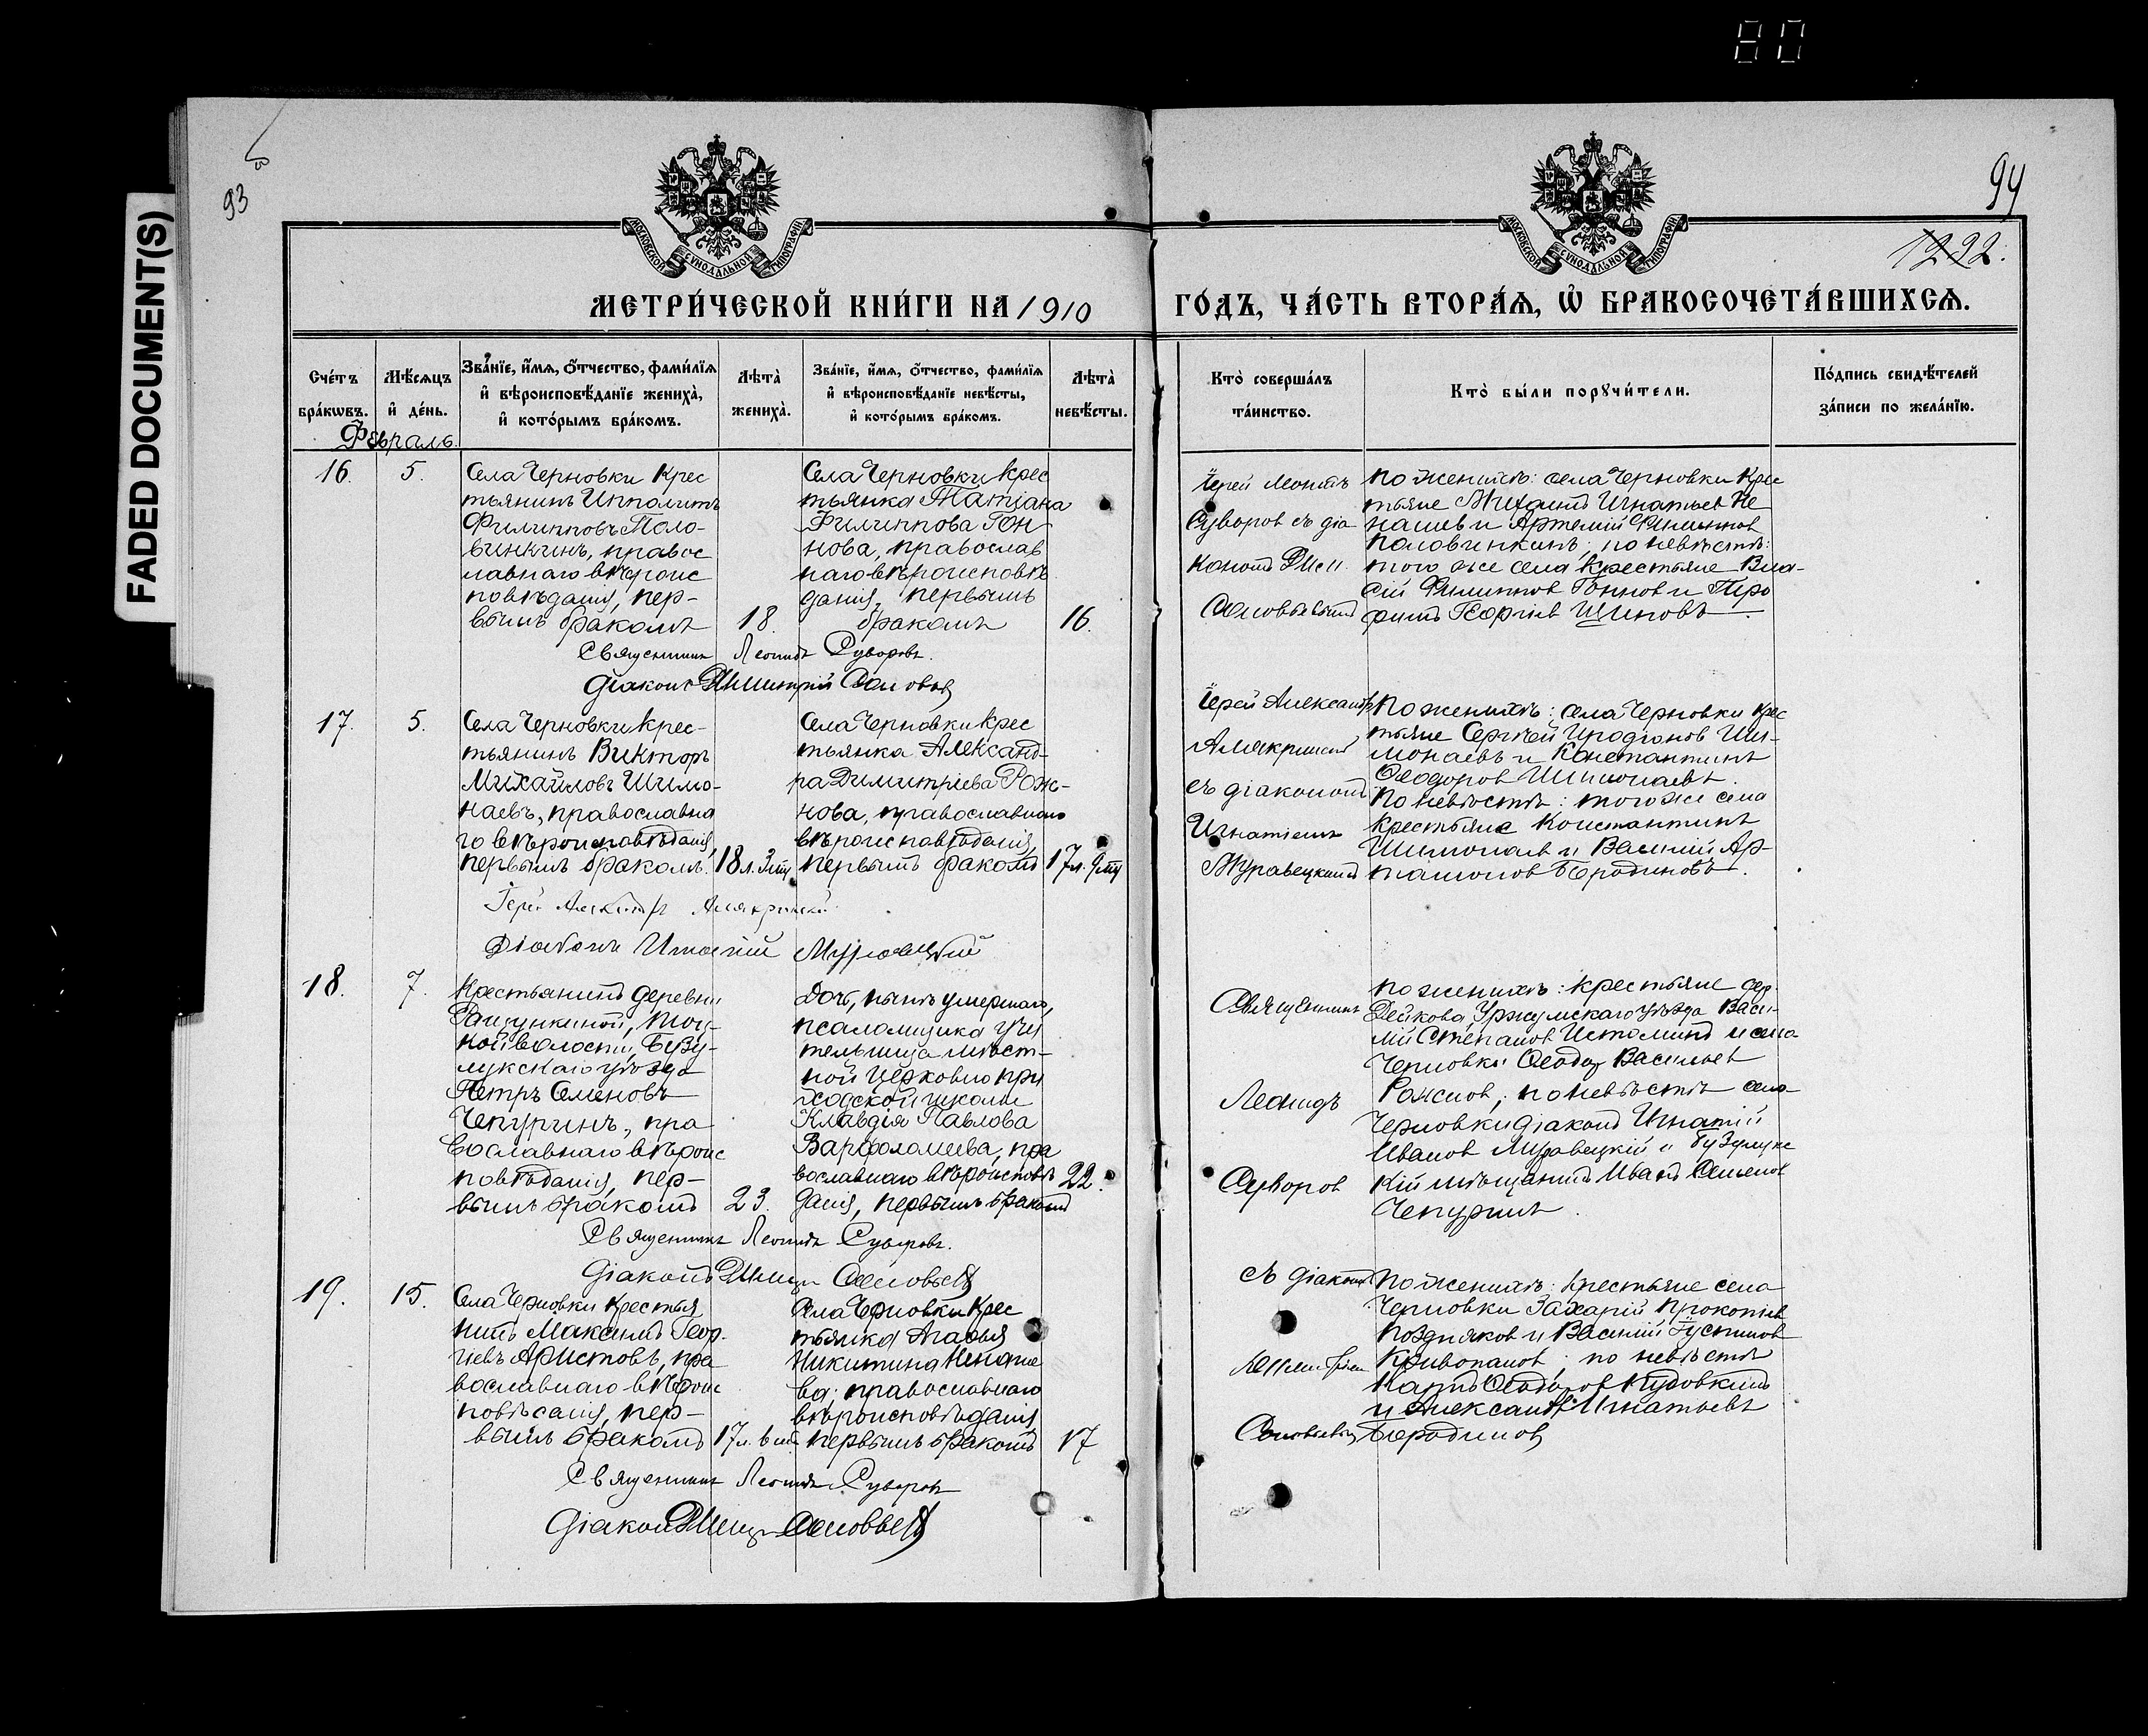 80
FADED DOCUMENT(S)
93
94
1222.
МОСКОВСКОЙ СѴНОДАЛЬНОЙ ТИПОГРАФІИ
МОСКОВСКОЙ СѴНОДАЛЬНОЙ ТИПОГРАФІИ
МЕТРИ́ЧЕСКОЙ КНИ́ГИ НА 1910
ГО́ДЪ, ЧА́СТЬ ВТОРА́Ѧ, Ѡ҆ БРАКОСОЧЕТА́ВШИХСѦ.
Сче́тъ бра́кѡвъ.
Мѣ́сѧцъ и҆ де́нь.
Зва́нїе, и҆́мѧ, ѻ҆́тчество, фами́лїѧ и҆ вѣроисповѣ́данїе жениха̀, и҆ кото́рымъ бра́комъ.
Лѣта̀ жениха̀.
Зва́нїе, и҆́мѧ, ѻ҆́тчество, фами́лїѧ и҆ вѣроисповѣ́данїе невѣ́сты, и҆ кото́рымъ бра́комъ.
Лѣта̀ невѣ́сты.
Кто̀ соверша́лъ та́инство.
Кто̀ бы́ли порꙋчи́тели.
По́дпись свидѣ́телей за́писи по жела́нїю.
Февраль.
16.
5.
Села Черновки Крес
тьянинъ Ипполитъ
Филипповъ Поло-
винкинъ, правос
лавнаго вѣроис
повѣданія, пер-
вымъ бракомъ
18.
Села Черновки Крес
тьянка Татіана
Филиппова Гон
нова, православ
наго вѣроисповѣ
данія, первымъ
бракомъ
16.
Іерей Леонидъ
Суворов съ діа
кономъ Дим.
Соловьевымъ
По женихѣ: села Черновки Крес
тьяне Михаилъ Игнатьев Не
нашев и Артемій Филиппов
Половинкинъ; по невѣстѣ:
того же села Крестьяне Вла-
сій Филиппов Гоннов и Тро
фимъ Георгіев Шиповъ.
Священникъ Леонидъ Суворовъ.
Діаконъ Димитрій Соловьев
17.
5.
Села Черновки Крес-
тьянинъ Викторъ
Михайловъ Шимо-
наевъ, православна
го вѣроисповѣданія,
первымъ бракомъ.
18 л. 3 мц
Села Черновки Крес
тьянка Александ-
ра Димитріева Рож-
нова, православнаго
вѣроисповѣданія,
первымъ бракомъ
17 л. 9 мц
Іерей Александръ
Алякринскій
съ діакономъ
Игнатіемъ
Муравецкимъ
По женихѣ: села Черновки Крес
тьяне Сергѣй Иродіонов Ши-
монаевъ и Константинъ
Ѳеодоров Шимонаевъ.
По невѣстѣ: того же села
Крестьяне Константинъ
Шимонаев и Василій Ар-
тамонов Бородиновъ.
Іерей Александръ Алякринскій
Діаконъ Игнатій Муравецкій
18.
7.
Крестьянинъ деревни
кой волости, Бузу-
лукскаго уѣзда
Петръ Семеновъ
Чепуринъ, пра
вославнаго вѣроис
повѣданія, пер-
вымъ бракомъ
23.
Дочь, нынѣ умершаго,
псаломщика учи
тельница мѣст-
ной церковно при
ходской школы
Клавдія Павлова
Варфоломеева, пра
вославнаго вѣроисповѣ
данія, первымъ бракомъ
22.
Священникъ
Леонидъ
Суворов
По женихѣ: крестьяне дер.
Дейкова, Уржумскаго уѣзда Васи-
лій Степанов Истоминъ и села
Черновки Ѳеодор Васильев
Рожнов; по невѣстѣ села
Черновки діаконъ Игнатій
Иванов Муравецкій и Бузулукс
кій мѣщанинъ Иванъ Семенов
Чепуринъ.
Священникъ Леонидъ Суворовъ.
Діаконъ Димитр Соловьев
19.
15.
Села Черновки Крестья
нинъ Максимъ Геор-
гіевъ Аристовъ, пра
вославнаго вѣроис
повѣданія, пер-
вымъ бракомъ
17 л. 6 мц
Села Черновки Крес
тьянка Агафья
Никитина Ненаше
ва; православнаго
вѣроисповѣданія
первымъ бракомъ
17
съ діаконом
Димитріем
Соловьевым
По женихѣ: Крестьяне села
Черновки Захарій Прокопіев
Поздняков и Василій Іустинов
Кривопалов; по невѣстѣ
Карпъ Ѳеодоров
и Александръ Игнатьевъ
Бородинов
Священникъ Леонидъ Суворовъ
Діаконъ Димитр Соловьев